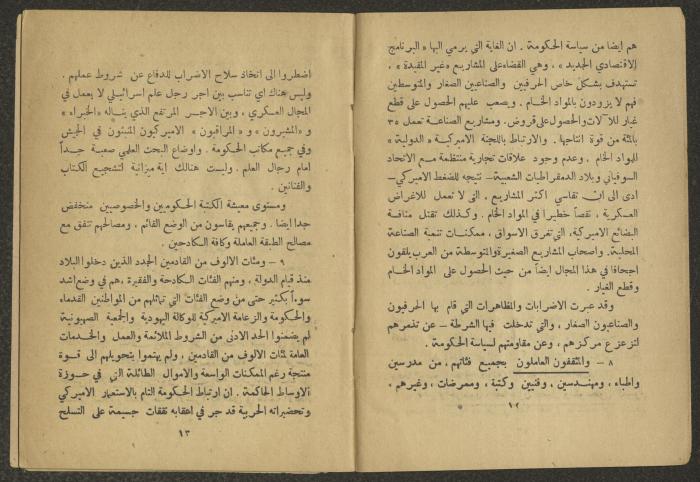 هم ايضا من سياسة الحكومة. ان الغاية التي يرمي اليها «البرنامج
الاقتصادي الجديد»، وهي القضاء على المشاريع «غير المفيدة»،
تستهدف بشكل خاص الحرفيين والصناعيين الصغار والمتوسطين
فهم لا يزودون بالمواد الخام. ويصعب عليهم الحصول على قطع
غيار للآلات والحصول على قروض. ومشاريع الصناعة تعمل ٣٥
بالمئة من قوة انتاجها. والارتباط باللجنة الاميركية «الدولية»
للمواد الخام، وعدم وجود علاقات تجارية منتظمة مع الاتحاد
السوفياتي وبلاد الدمقراطيات الشعبية – نتيجه للضغط الاميركي –
ادى الى ان تقاسي اكثر المشاريع، التي لا تعمل للاغراض
العسكرية، نقصاً خطيرا في المواد الخام. وكذلك تقتل منافسة
البضائع الاميركية، التي تغرق الاسواق، ممكنات تنمية الصناعة
المحلية. واصحاب المشاريع الصغيرة والمتوسطة من العرب يلقون
اجحافا في هذا المجال ايضاً من حيث الحصول على المواد الخام
وقطع الغيار.
وقد عبرت الاضرابات والمظاهرات التي قام بها الحرفيون
والصناعيون الصغار، والتي تدخلت فيها الشرطة – عن تذمرهم
لتزعزع مركزهم، وعن مقاومتهم لسياسة الحكومة.
٨ – والمثقفون العاملون بجميع فئاتهم، من مدرسين
واطباء، ومهندسين، وفنيين وكتبة، وممرضات، وغيرهم،
١٢
اضطروا الى اتخاذ سلاح الاضراب للدفاع عن شروط عملهم.
وليس هناك اي تناسب بين اجر رجل علم اسرائيلي لا يعمل في
المجال العسكري، وبين الاجر المرتفع الذي يناله «الخبراء»
و «المشيرون» و «المراقبون» الاميركيون المثبتون في الجيش
وفي جميع مكاتب الحكومة. واوضاع البحث العلمي صعبة جداً
امام رجال العلم. وليست هنالك اية ميزانية لتشجيع الكتاب
والفنانين.
ومستوى معيشة الكتبة الحكوميين والخصوصيين منخفض
جدا ايضا. وجميعهم يقاسون من الوضع القائم، ومصالحهم تتفق مع
مصالح الطبقة العاملة وكافة الكادحين.
٩ – ومئات الالوف من القادمين الجدد الذين دخلوا البلاد
منذ قيام الدولة، ومنهم الفئات الكادحة والفقيرة، هم في وضع اشد
سوءاً بكثير حتى من وضع الفئات التي تماثلهم من المواطنين القدماء
والحكومة والزعامة الاميركية للوكالة اليهودية والجمعية الصهيونية
لم يضمنوا الحد الادنى من الشروط الملائمة والعمل والخدمات
العامة لمئات الالوف من القادمين، ولم يهتموا بتحويلهم الى قوة
منتجة رغم الممكنات الواسعة والاموال الطائلة التي في حوزة
الاوساط الحاكمة. ان ارتباط الحكومة التام بالاستعمار الاميركي
وتحضيراته الحربية قد جر في اعقابه نفقات جسيمة على التسلح
١٣